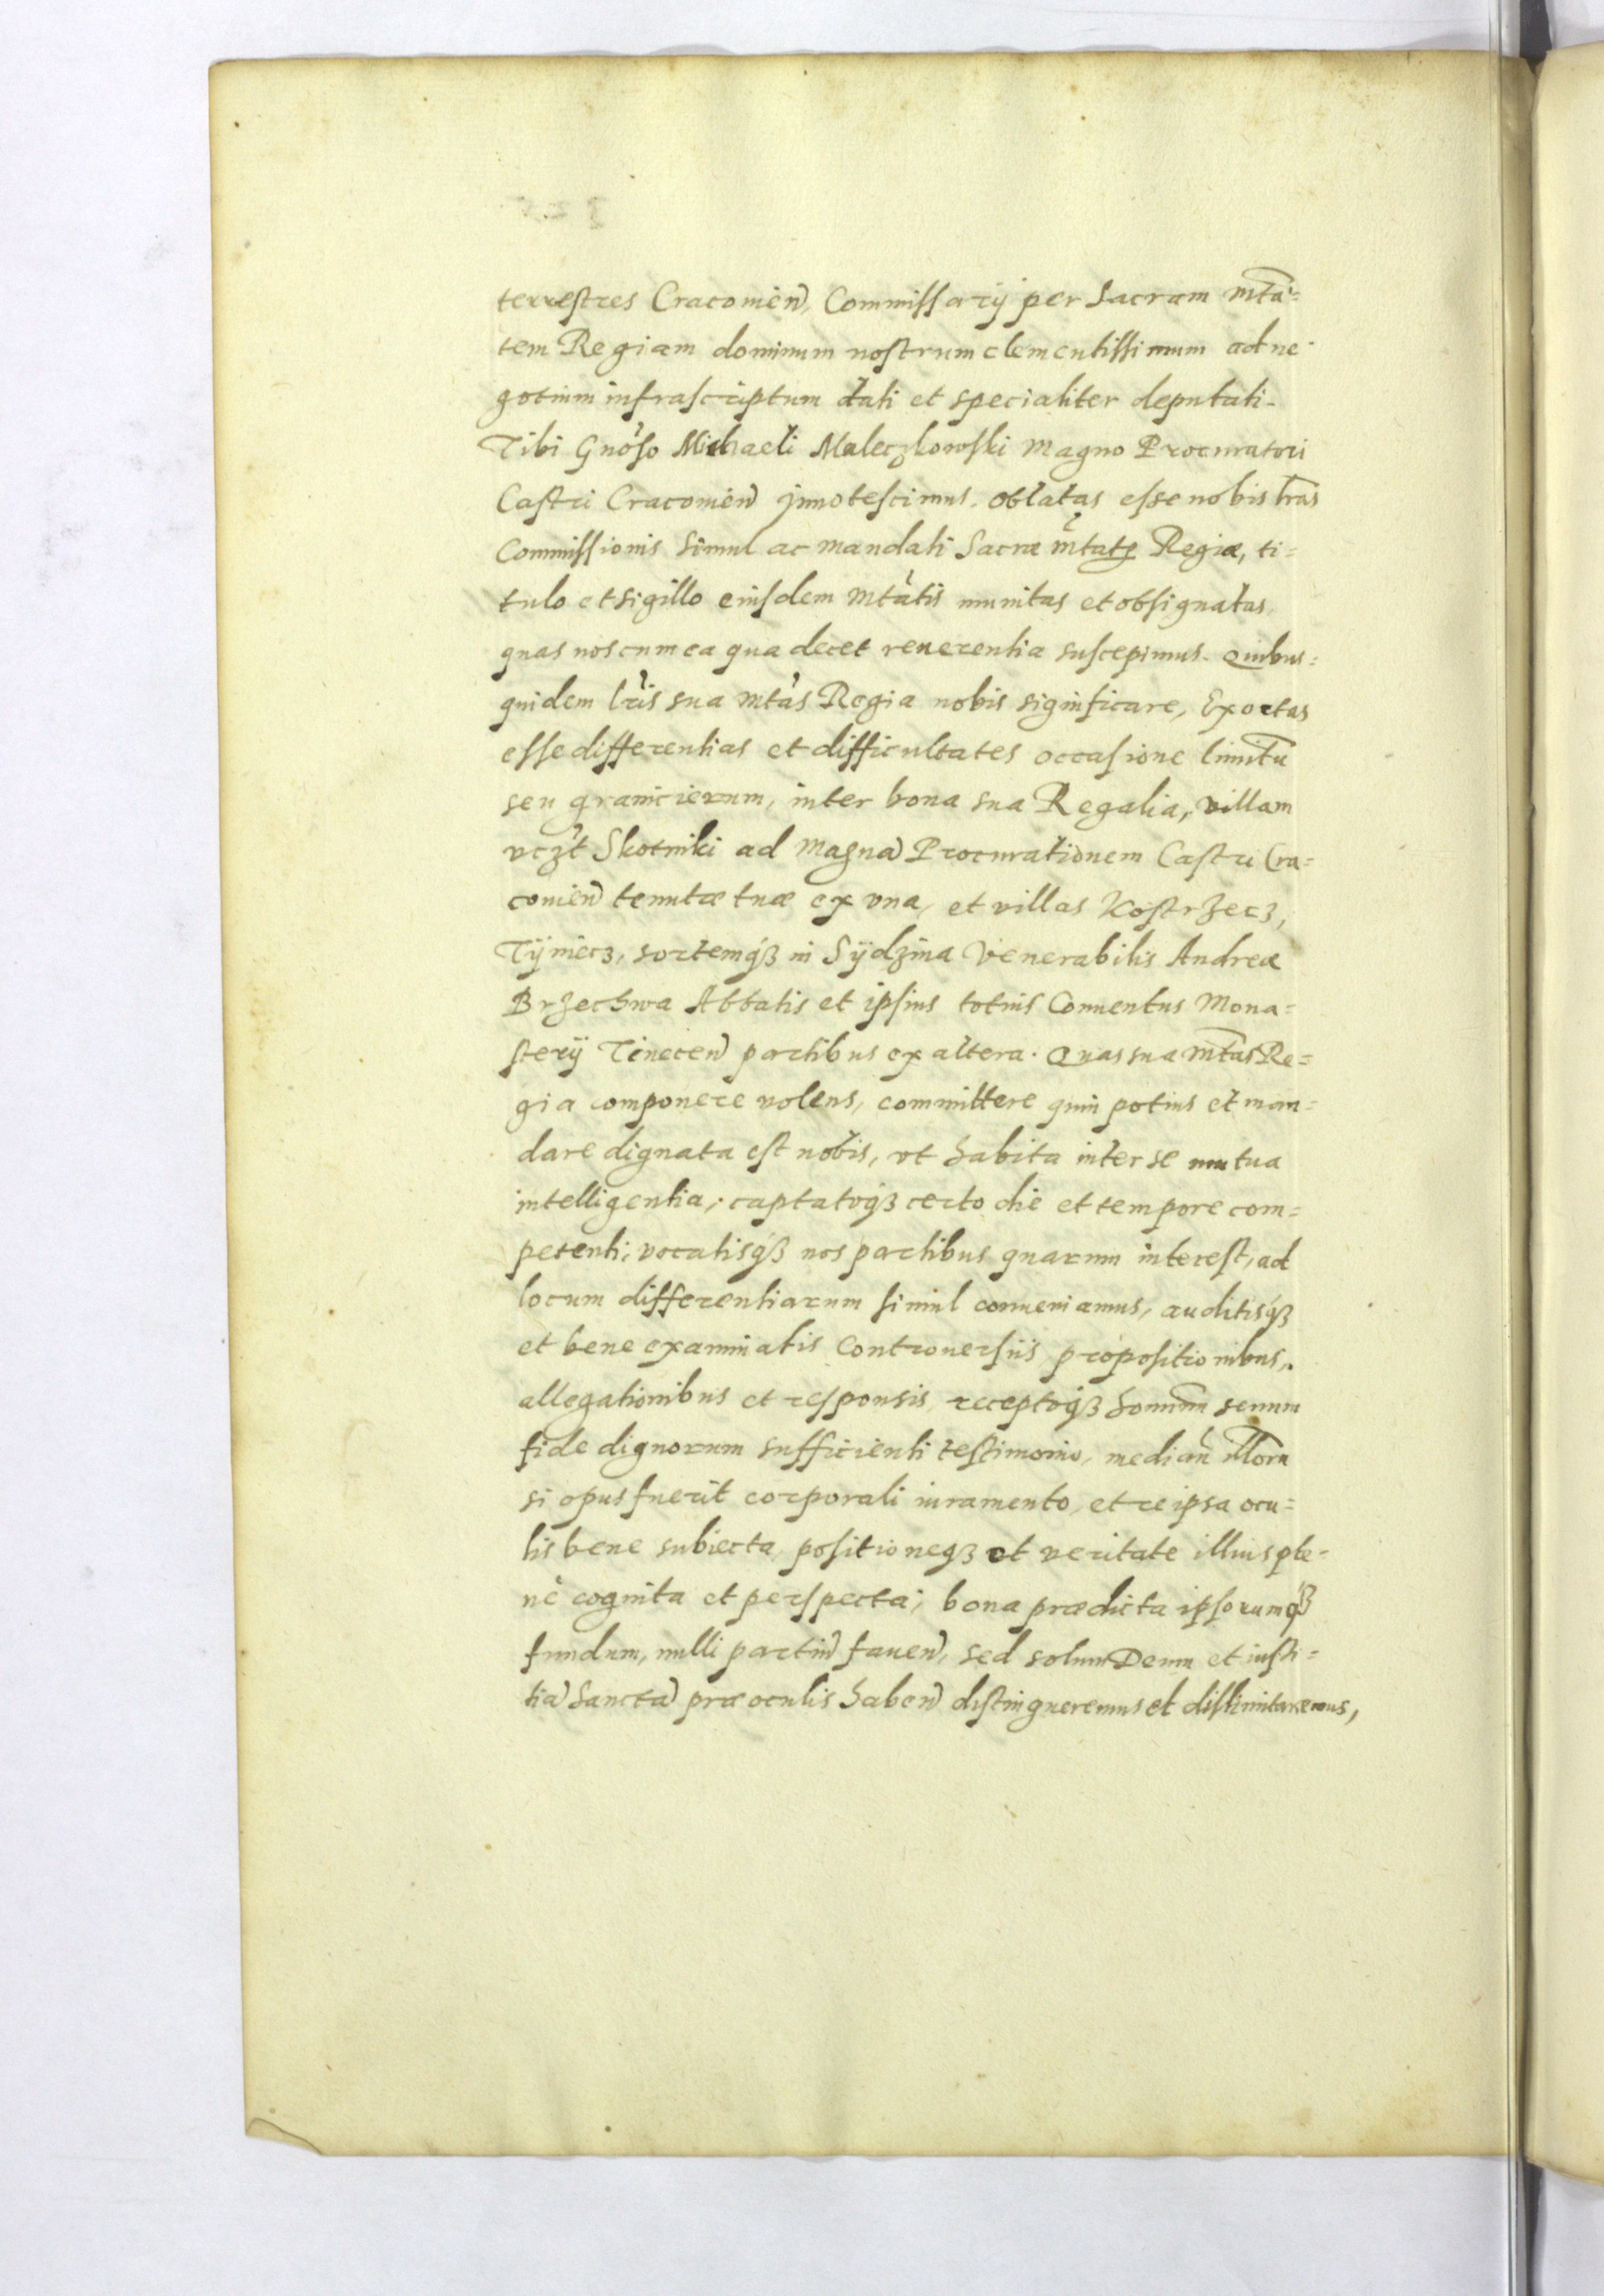 terrestres Cracouien, Commissarij per Sacram Mtā=
tem Regiam dominum nostrum clementissimum ad ne-
gotium infrascriptum dati et specialiter deputati.
Tibi Gnoso Michaeli Maleczkowski Magno Procuratori
Castri Cracouien innotescimus. oblatas esse nobis lras
Commissionis simul ac mandati Sacræ Mtatis Regiæ, ti=
tulo et sigillo eiusdem Mtatis munitas et obsignatas,
quas nos cum ea qua decet reuerentia suscepimus. Quibus=
quidem lris sua Mtas Regia nobis significare, Exortas
esse differentias et difficultates occasione limitū
seu granicierum, inter bona sua Regalia, villam
vczt Skotniki ad Magnā Procurationem Castri Cra=
couien tenutæ tuæ ex vna, et villas Kostrzecz,
Tÿniecz, sortemqȝ in Sÿdzina Venerabilis Andreæ
Brzechwa Abbatis et ipsius totius Conuentus Mona=
sterij Tinecen partibus ex altera. Quas sua Mtas Re=
gia componere volens, committere quin potius et man=
dare dignata est nobis, vt habita inter se mutua
intelligentia, captatoqȝ certo die et tempore com=
petenti, vocatisqȝ nos partibus quarum interest, ad
locum differentiarum simul conueniamus, auditisqȝ
et bene examinatis Controuersiis propositionibus,
allegationibus et responsis, receptoqȝ hominū senum
fide dignorum sufficienti testimonio, median illorū
si opus fuerit corporali iuramento, et re ipsa ocu=
lis bene subiecta, positioneqȝ et veritate illius ple=
nè cognita et perspecta, bona prædicta ipsorumqȝ
fundum, nulli partiū fauen, sed solum Deum et iusti=
tiā sanctā præ oculis haben distingueremus et dislimitaremus,